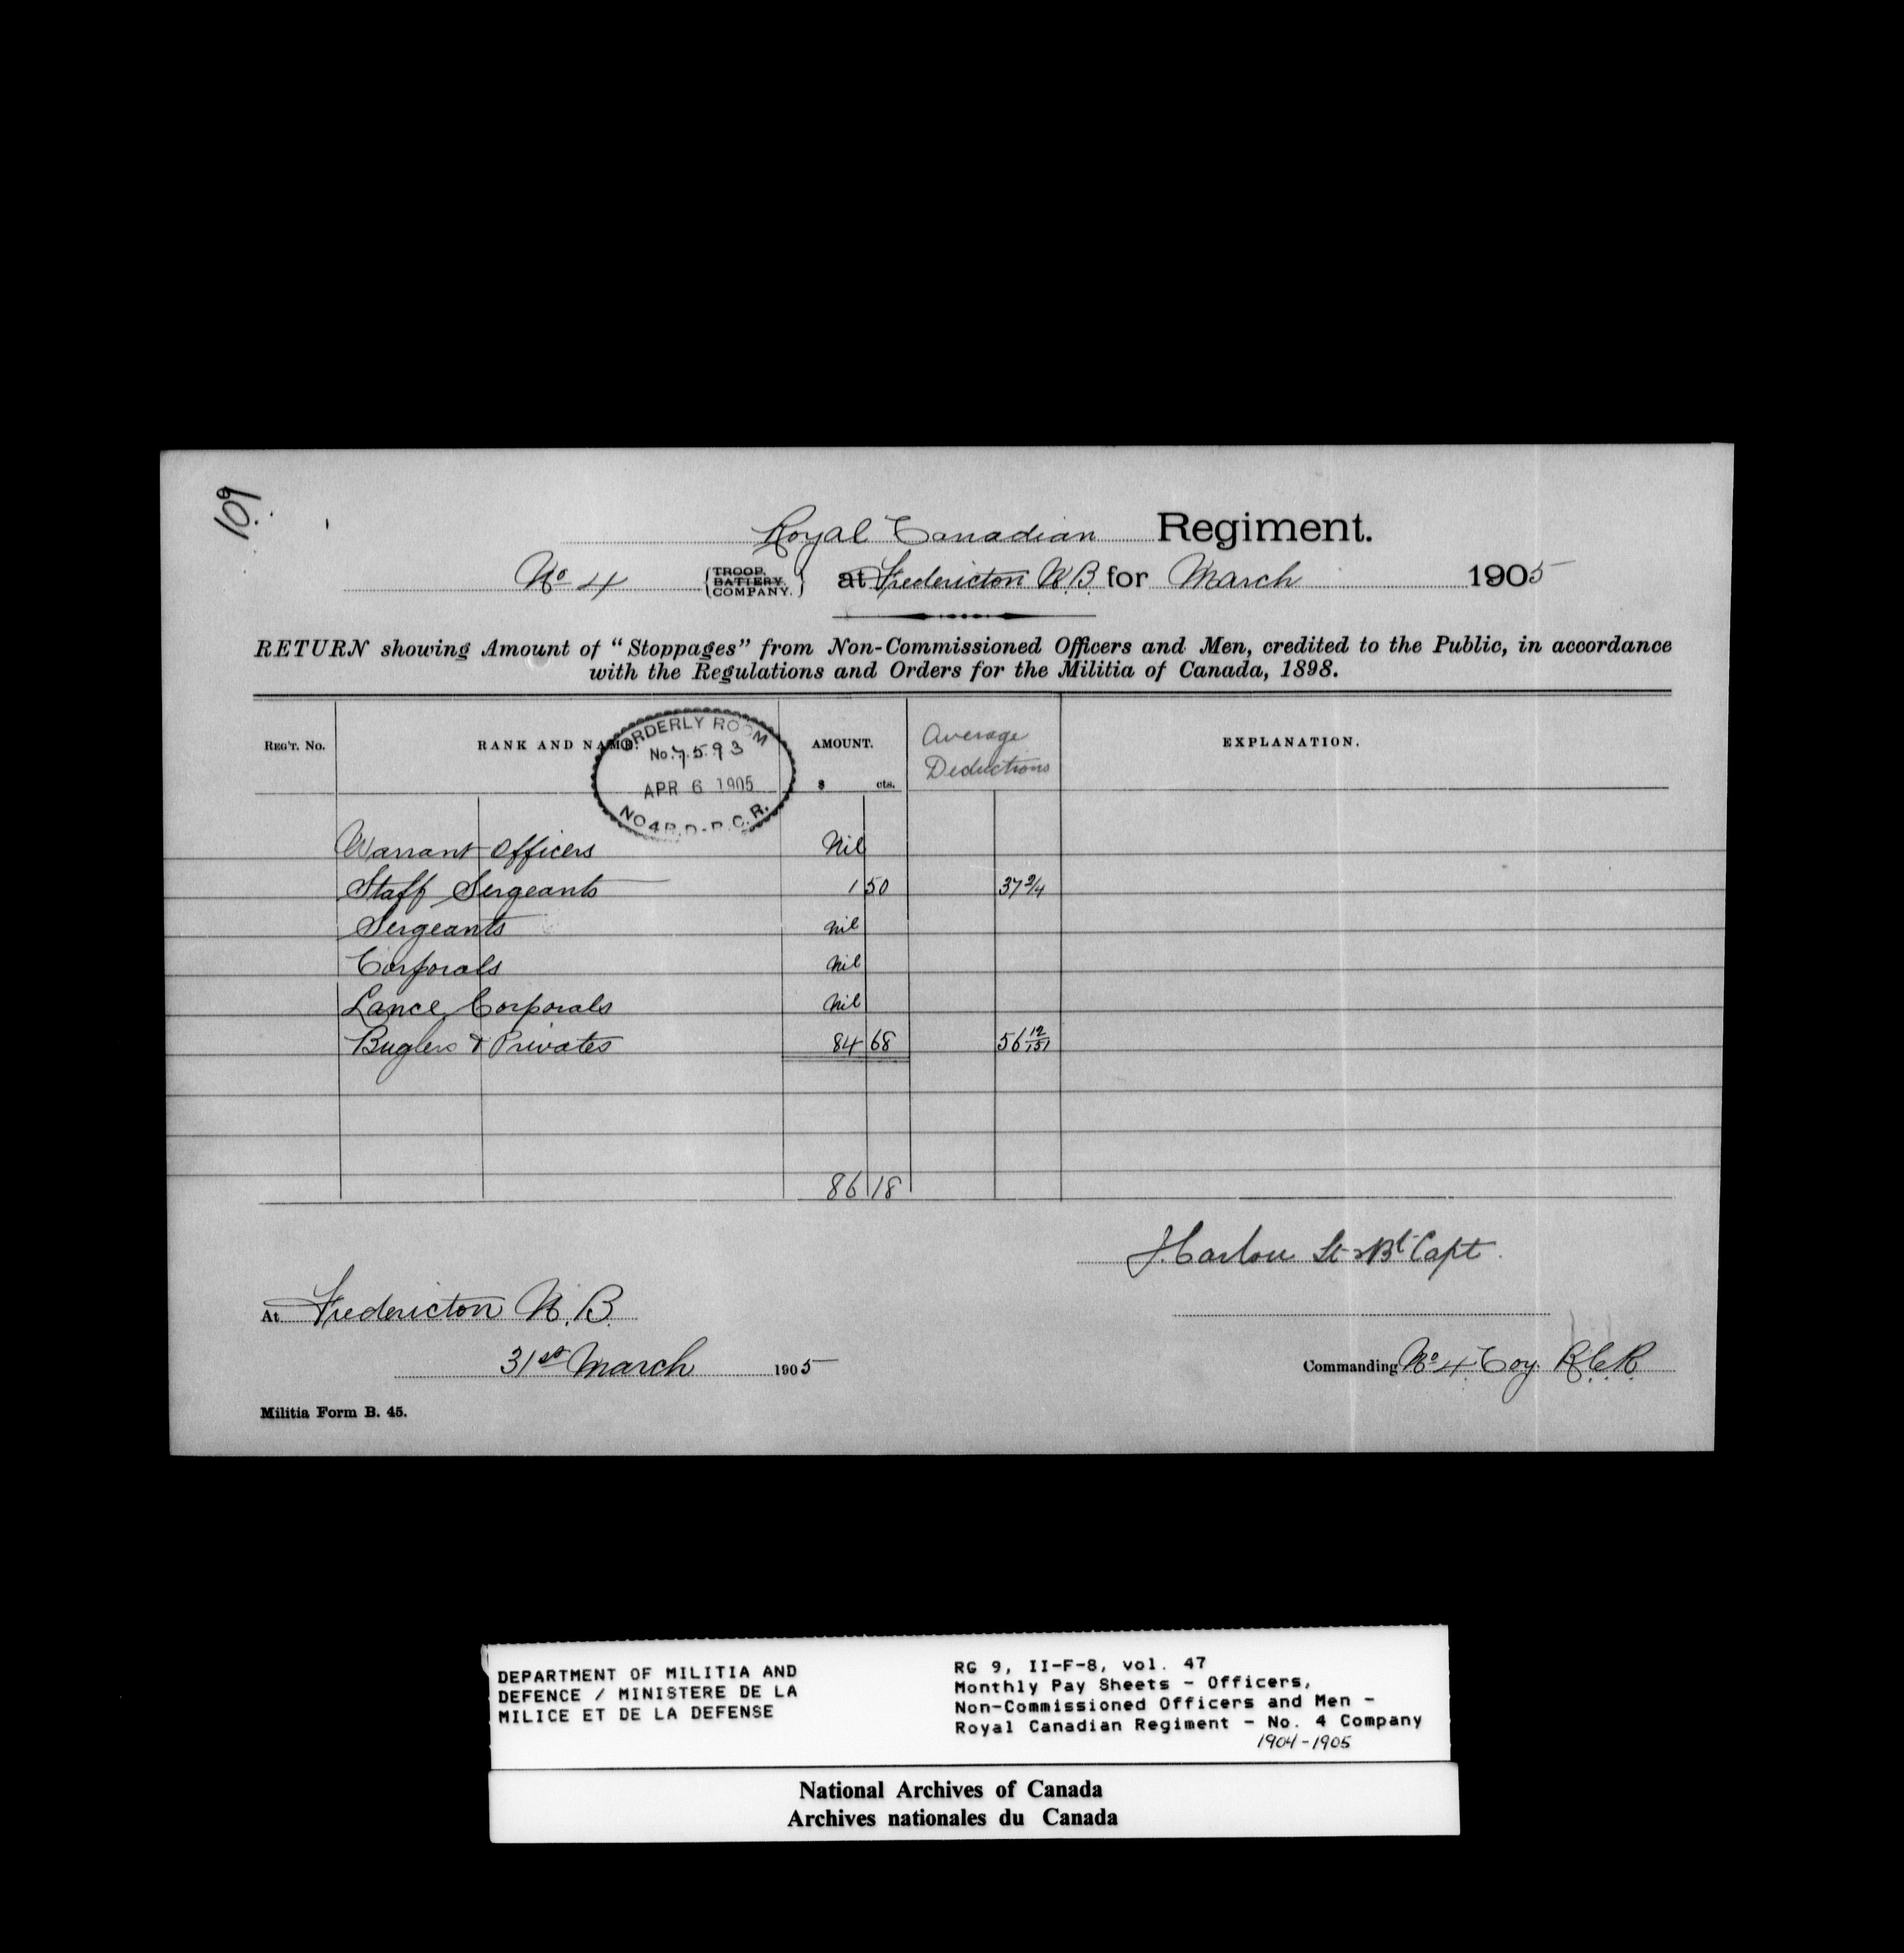 109.
Royal Canadian Regiment.
No 4 {TROOP, BATTERY, COMPANY.} at Fredericton N.B. for March 1905
RETURN showing Amount of "Stoppages" from Non-Commissioned Officers and Men, credited to the Public, in accordance
with the Regulations and Orders for the Militia of Canada, 1898.
REG'T. No. RANK AND NAME. AMOUNT. $ cts. Average Deductions EXPLANATION.
ORDERLY ROOM
No. 7593
APR 6 1905
NO 4 R.D-R.C.R.
Warrant Officers Nil
Staff Sergeants 1 50 37 2/4
Sergeants nil
Corporals nil
Lance Corporals nil
Buglers & Privates 84 68 56 12/151
86 18
Lt & Bt Capt.
At Fredericton N.B.
31st March 1905
Commanding No 4 Coy. R.C.R.
Militia Form B. 45.
DEPARTMENT OF MILITIA AND
DEFENCE / MINISTERE DE LA
MILICE ET DE LA DEFENSE
RG 9, II-F-8, vol. 47
Monthly Pay Sheets - Officers,
Non-Commissioned Officers and Men -
Royal Canadian Regiment - No. 4 Company
1904-1905
National Archives of Canada
Archives nationales du Canada